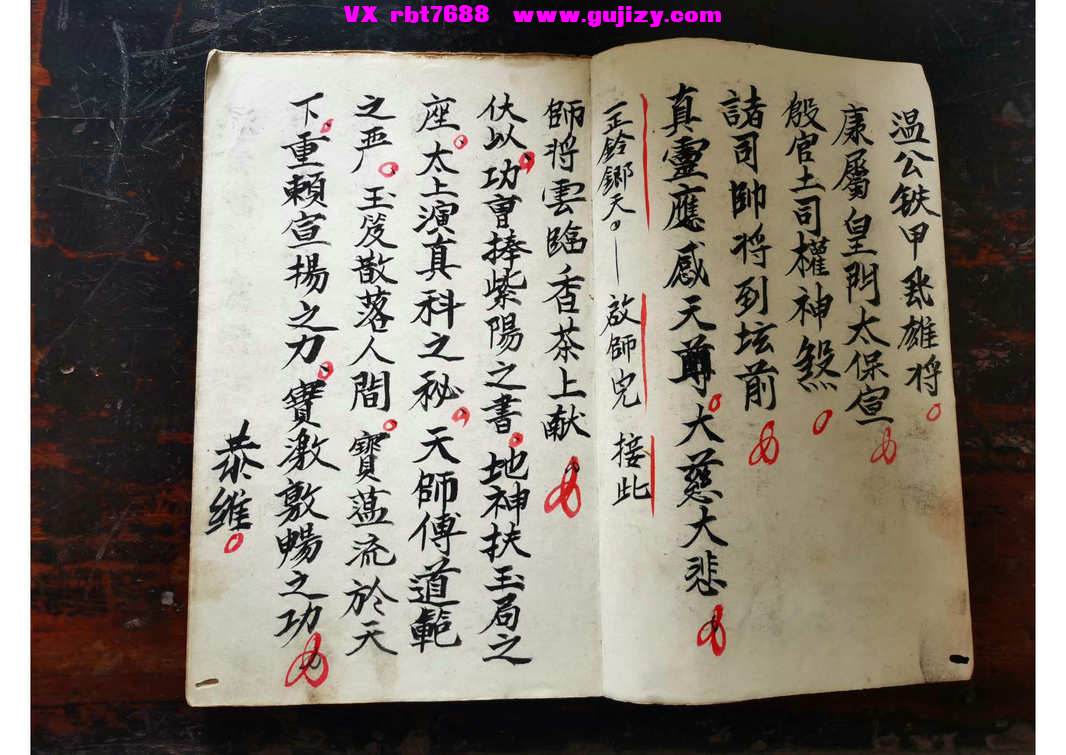 VX rbt7688 www.gujizy.com
温公鉄甲飛雄将
康屬皇門太保宣
殷官土司權神煞
諸司帥将到坛前
真靈應感天尊大慈大悲
正鈴鄉天 啟師 接此
師将雲臨香茶上献
伏以功曹捧紫陽之書地神扶玉局之
座太上演真科之秘天師傅道範
之严玉笈散落人間寶蕴流於天
下重賴宣揚之力實激敷暢之功
恭維